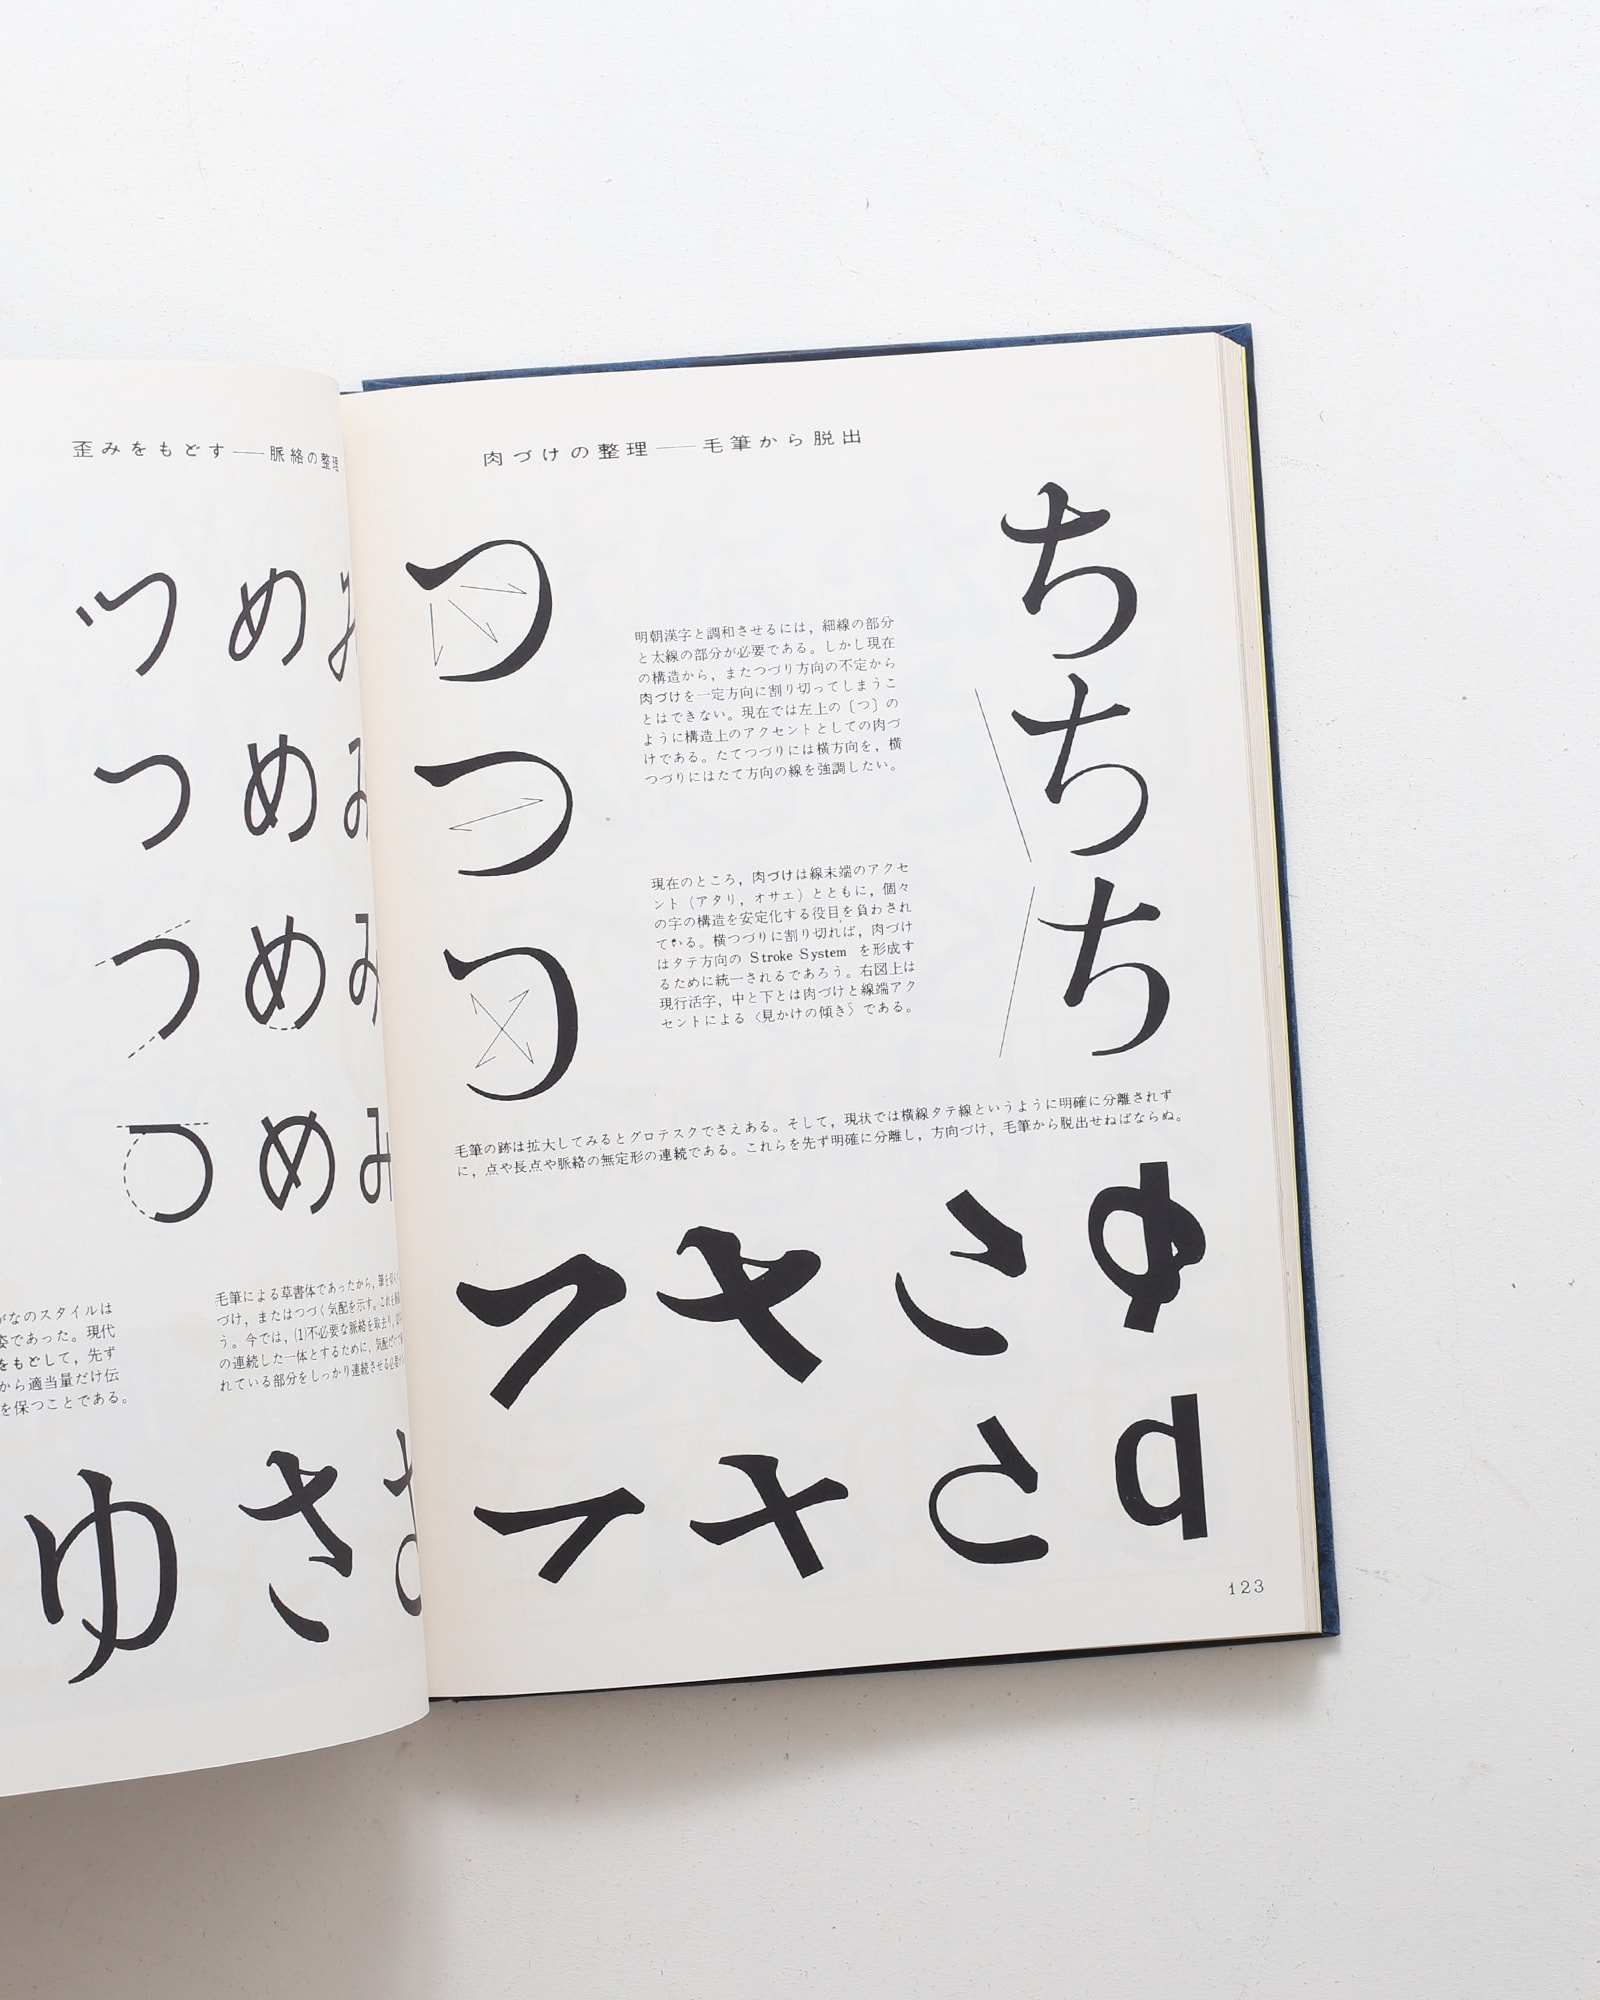 歪みをもどす——脈絡の整理
つ め
つ め み
つ め み
つ め み
がなのスタイルは
姿であった。現代
をもどして，先ず
から適当量だけ伝
を保つことである。
毛筆による草書体であったから，筆を
づけ，またはつづく気配を示す。これを
う。今では，(1)不必要な脈絡を取去り，
の連続した一体とするために，気配だけで
れている部分をしっかり連続させる必要が
ゆ さ
肉づけの整理——毛筆から脱出
つ
つ
つ
明朝漢字と調和させるには，細線の部分
と太線の部分が必要である。しかし現在
の構造から，またつづり方向の不定から
肉づけを一定方向に割り切ってしまうこ
とはできない。現在では左上の〔つ〕の
ように構造上のアクセントとしての肉づ
けである。たてつづりには横方向を，横
つづりにはたて方向の線を強調したい。
現在のところ，肉づけは線末端のアクセ
ント（アタリ，オサエ）とともに，個々
の字の構造を安定化する役目を負わされ
ている。横つづりに割り切れば，肉づけ
はタテ方向の Stroke System を形成す
るために統一されるであろう。右図上は
現行活字，中と下とは肉づけと線端アク
セントによる〈見かけの傾き〉である。
ち
ち
ち
毛筆の跡は拡大してみるとグロテスクでさえある。そして，現状では横線タテ線というように明確に分離されず
に，点や長点や脈絡の無定形の連続である。これらを先ず明確に分離し，方向づけ，毛筆から脱出せねばならぬ。
123